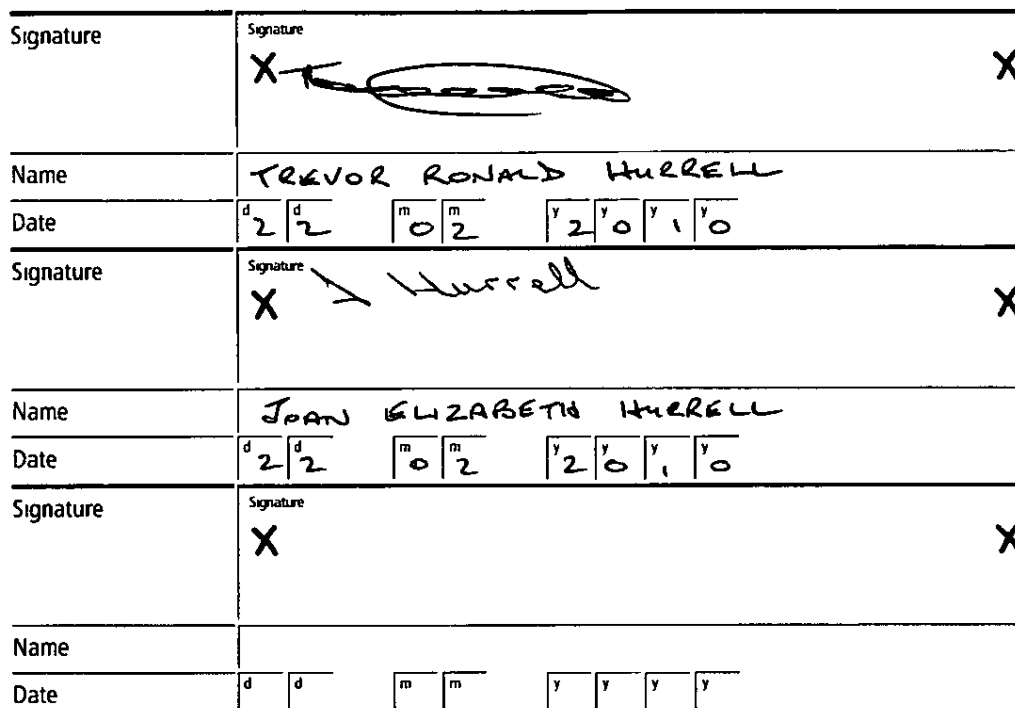 Signature Signature
X X
Name TREVOR RONALD HURRELL
Date d 2 d 2 m 0 m 2 y 2 y 0 y 1 y 0
Signature Signature
X J Hurrell X
Name JOAN ELIZABETH HURRELL
Date d 2 d 2 m 0 m 2 y 2 y 0 y 1 y 0
Signature Signature
X X
Name
Date d d m m y y y y